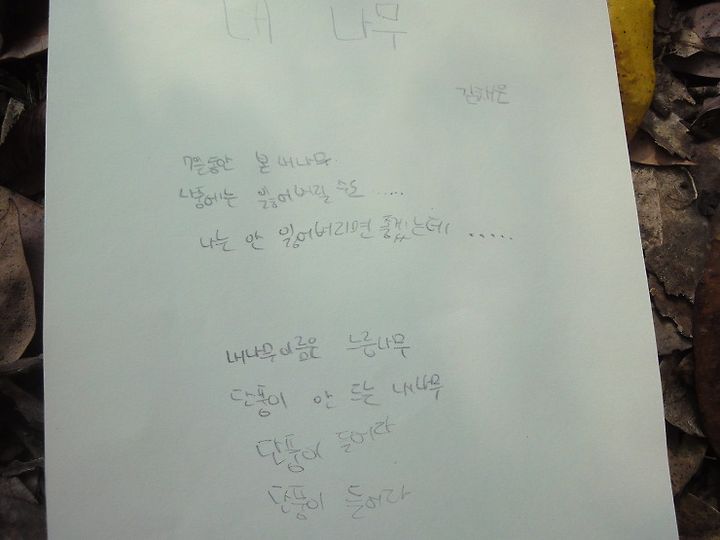 내 나무
김채은
7분동안 본 내나무
나중에는 잃어버릴 수도 .....
나는 안 잃어버리면 좋겠는데 .....
내나무이름은 느릅나무
단풍이 안 드는 내나무
단풍이 들어라
단풍이 들어라